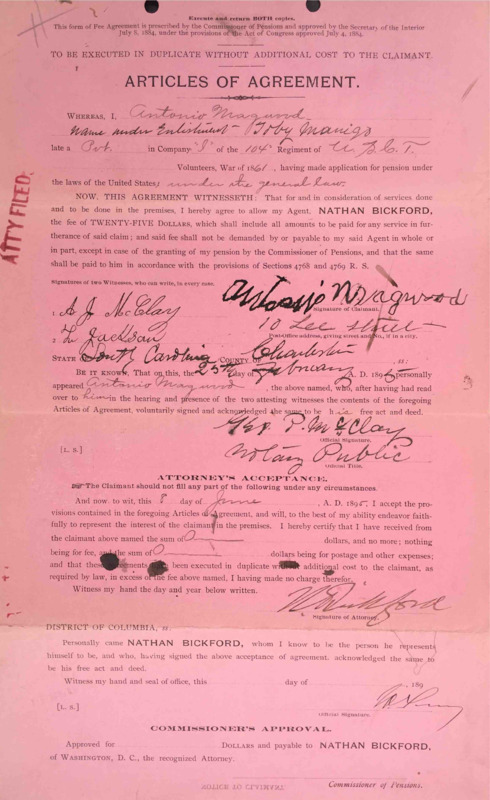 Execute and return BOTH copies.
This form of Fee Agreement is prescribed by the Commissioner of Pensions and approved by the Secretary of the Interior
July 8, 1884, under the provisions of the Act of Congress approved July 4, 1884.
TO BE EXECUTED IN DUPLICATE WITHOUT ADDITIONAL COST TO THE CLAIMANT.
ARTICLES OF AGREEMENT.
WHEREAS, I, Antonio Magwood
name under Enlistment - Toby Manigo
late a Pvt. in Company "I" of the 104" Regiment of U. S. C. T.
Volunteers, War of 1861, having made application for pension under
the laws of the United States, under the general law.
NOW, THIS AGREEMENT WITNESSETH: That for and in consideration of services done
and to be done in the premises, I hereby agree to allow my Agent, NATHAN BICKFORD,
the fee of TWENTY-FIVE DOLLARS, which shall include all amounts to be paid for any service in fur-
therance of said claim; and said fee shall not be demanded by or payable to my said Agent in whole or
in part, except in case of the granting of my pension by the Commissioner of Pensions, and that the same
shall be paid to him in accordance with the provisions of Sections 4768 and 4769 R. S.
ATTY FILED.
Signatures of two Witnesses, who can write, in every case.
Antonio Magwood
Signature of Claimant.
1. A J McClay
10 Lee street
2. Jackson
Post Office address, giving street and No., if in a city.
STATE OF South Carolina COUNTY OF Charleston, ss:
BE IT KNOWN, That on this, the 25th day of February A. D. 1895 personally
appeared Antonio Magwood, the above named, who, after having had read
over to him in the hearing and presence of the two attesting witnesses the contents of the foregoing
Articles of Agreement, voluntarily signed and acknowledged the same to be his free act and deed.
P. McClay
Official Signature.
[L. S.] Notary Public
Official Title.
ATTORNEY'S ACCEPTANCE.
The Claimant should not fill any part of the following under any circumstances.
And now, to wit, this 8 day of June, A. D. 1895. I accept the pro-
visions contained in the foregoing Articles of Agreement, and will, to the best of my ability endeavor faith-
fully to represent the interest of the claimant in the premises. I hereby certify that I have received from
the claimant above named the sum of 0 dollars, and no more; nothing
being for fee, and the sum of 0 dollars being for postage and other expenses;
and that these agreements have been executed in duplicate without additional cost to the claimant, as
required by law, in excess of the fee above named, I having made no charge therefor.
Witness my hand the day and year below written.
N. Bickford
Signature of Attorney.
DISTRICT OF COLUMBIA, ss:
Personally came NATHAN BICKFORD, whom I know to be the person he represents
himself to be, and who, having signed the above acceptance of agreement, acknowledged the same to
be his free act and deed.
Witness my hand and seal of office, this day of , 189
[L. S.]
Official Signature.
COMMISSIONER'S APPROVAL.
Approved for DOLLARS and payable to NATHAN BICKFORD,
of WASHINGTON, D. C., the recognized Attorney.
Commissioner of Pensions.
NOTICE TO CLAIMANT.